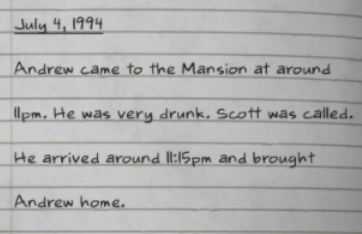 July 4, 1994
Andrew came to the Mansion at around
11pm. He was very drunk. Scott was called.
He arrived around 11:15pm and brought
Andrew home.